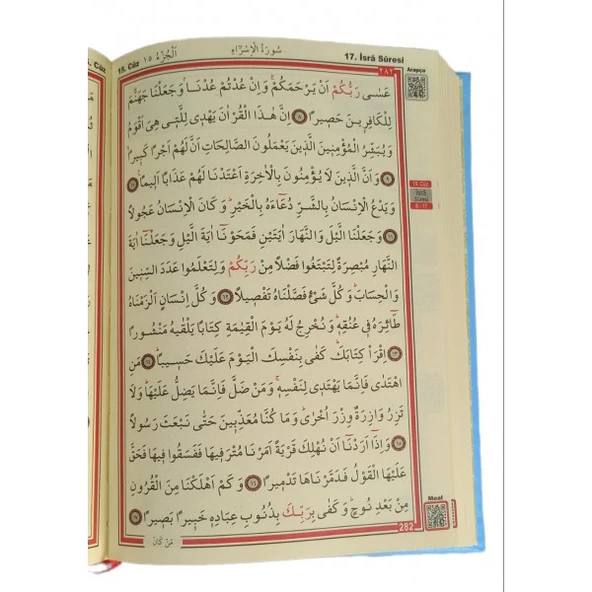 15. Cüz
اَلْجُزْءُ ١٥
سُورَةُ الْاِسْرَاءِ
17. İsrâ Sûresi
٢٨٢
Arapça
عَسٰى رَبُّكُمْ اَنْ يَرْحَمَكُمْۚ وَاِنْ عُدْتُمْ عُدْنَاۘ وَجَعَلْنَا جَهَنَّمَ
لِلْكَافِر۪ينَ حَص۪يرًا ﴿٨﴾ اِنَّ هٰذَا الْقُرْاٰنَ يَهْد۪ي لِلَّت۪ي هِيَ اَقْوَمُ
وَيُبَشِّرُ الْمُؤْمِن۪ينَ الَّذ۪ينَ يَعْمَلُونَ الصَّالِحَاتِ اَنَّ لَهُمْ اَجْرًا كَب۪يرًاۙ
﴿٩﴾ وَاَنَّ الَّذ۪ينَ لَا يُؤْمِنُونَ بِالْاٰخِرَةِ اَعْتَدْنَا لَهُمْ عَذَابًا اَل۪يمًا۟ ﴿١٠﴾
وَيَدْعُ الْاِنْسَانُ بِالشَّرِّ دُعَٓاءَهُ بِالْخَيْرِۜ وَكَانَ الْاِنْسَانُ عَجُولًا
﴿١١﴾ وَجَعَلْنَا الَّيْلَ وَالنَّهَارَ اٰيَتَيْنِ فَمَحَوْنَٓا اٰيَةَ الَّيْلِ وَجَعَلْنَٓا اٰيَةَ
النَّهَارِ مُبْصِرَةً لِتَبْتَغُوا فَضْلًا مِنْ رَبِّكُمْ وَلِتَعْلَمُوا عَدَدَ السِّن۪ينَ
وَالْحِسَابَۜ وَكُلَّ شَيْءٍ فَصَّلْنَاهُ تَفْص۪يلًا ﴿١٢﴾ وَكُلَّ اِنْسَانٍ اَلْزَمْنَاهُ
طَٓائِرَهُ ف۪ي عُنُقِه۪ۜ وَنُخْرِجُ لَهُ يَوْمَ الْقِيٰمَةِ كِتَابًا يَلْقٰيهُ مَنْشُورًا
﴿١٣﴾ اِقْرَأْ كِتَابَكَۜ كَفٰى بِنَفْسِكَ الْيَوْمَ عَلَيْكَ حَس۪يبًاۜ ﴿١٤﴾ مَنِ
اهْتَدٰى فَاِنَّمَا يَهْتَد۪ي لِنَفْسِه۪ۚ وَمَنْ ضَلَّ فَاِنَّمَا يَضِلُّ عَلَيْهَاۜ وَلَا
تَزِرُ وَازِرَةٌ وِزْرَ اُخْرٰىۜ وَمَا كُنَّا مُعَذِّب۪ينَ حَتّٰى نَبْعَثَ رَسُولًا
﴿١٥﴾ وَاِذَٓا اَرَدْنَٓا اَنْ نُهْلِكَ قَرْيَةً اَمَرْنَا مُتْرَف۪يهَا فَفَسَقُوا ف۪يهَا فَحَقَّ
عَلَيْهَا الْقَوْلُ فَدَمَّرْنَاهَا تَدْم۪يرًا ﴿١٦﴾ وَكَمْ اَهْلَكْنَا مِنَ الْقُرُونِ
مِنْ بَعْدِ نُوحٍۜ وَكَفٰى بِرَبِّكَ بِذُنُوبِ عِبَادِه۪ خَب۪يرًا بَص۪يرًا ﴿١٧﴾
15. Cüz
İsrâ
Sûresi
8 - 17
Meal
282
مَنْ كَانَ